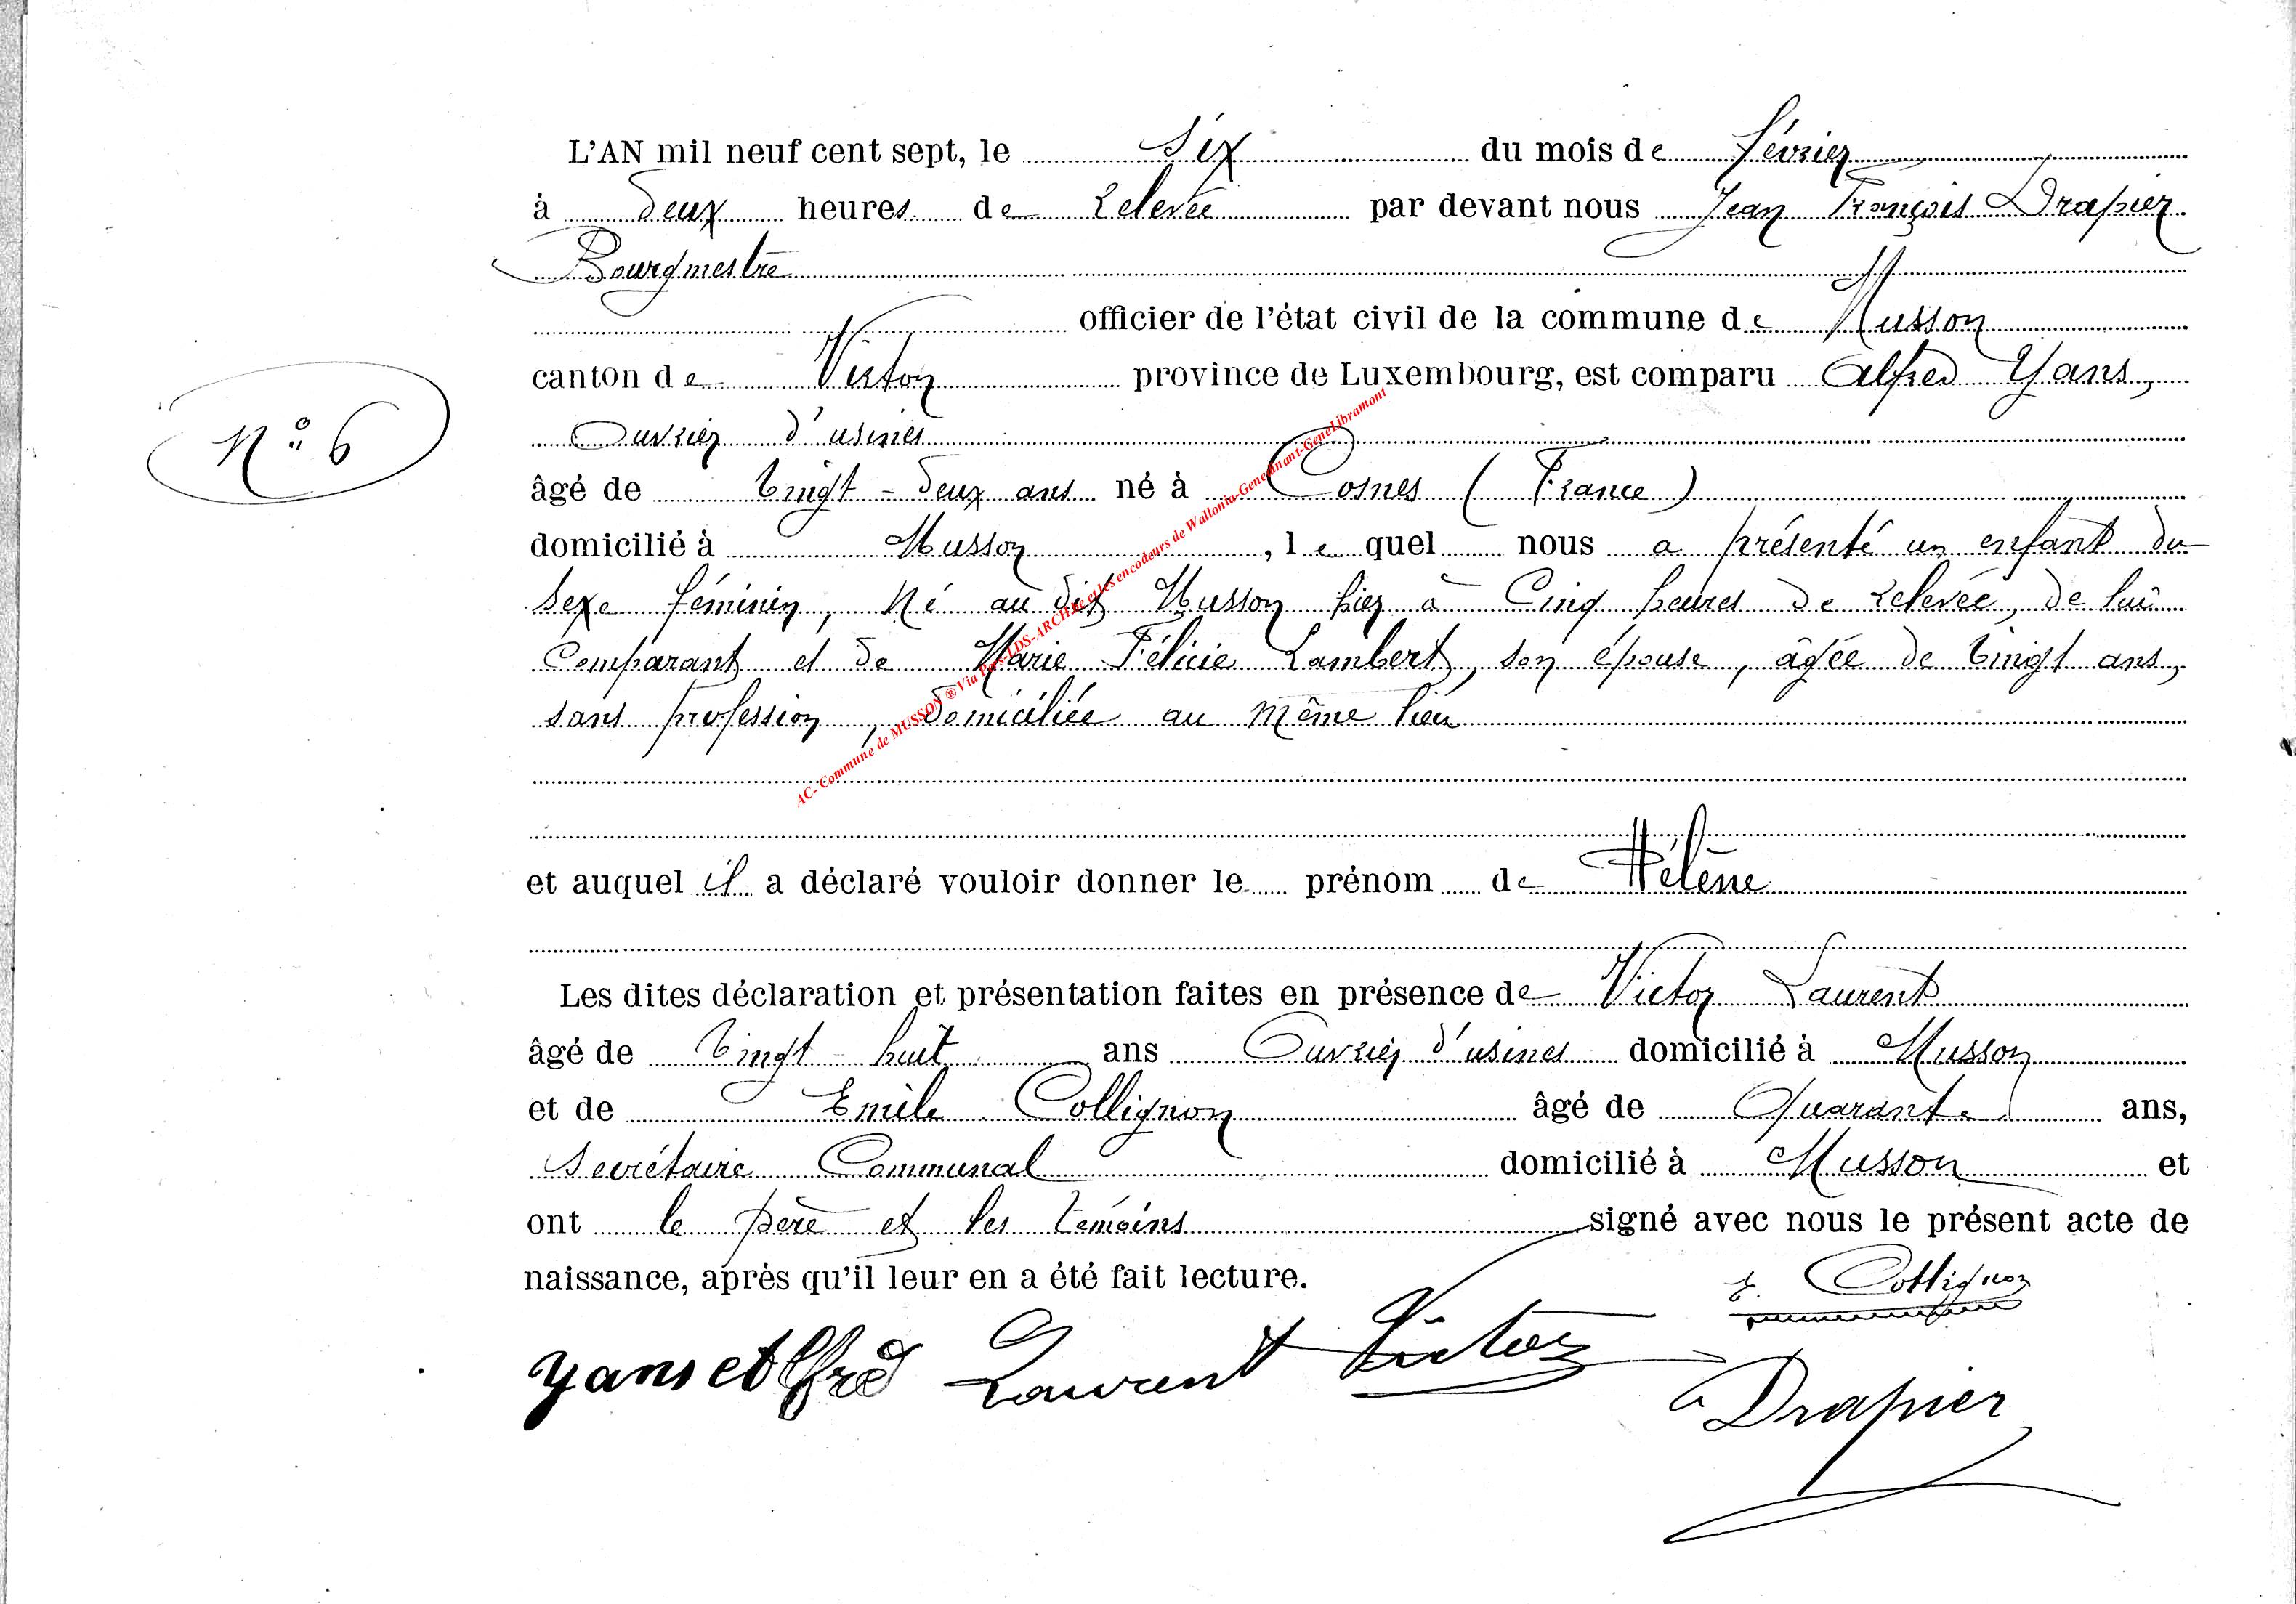 L'AN mil neuf cent sept, le six du mois de février
à deux heures de relevée par devant nous Jean François Drapier
Bourgmestre
officier de l'état civil de la commune de Musson
canton de Virton province de Luxembourg, est comparu Alfred Yans,
Ouvrier d'usines
N° 6
âgé de vingt-deux ans né à Cosnes (France)
domicilié à Musson, le quel nous a présenté un enfant du
sexe féminin, né au dit Musson hier à Cinq heures de relevée, de lui
Comparant et de Marie Félicie Lambert, son épouse, âgée de vingt ans,
sans profession, domiciliée au même lieu
AC- Commune de MUSSON ® Via Pars-LDS-ARCH et les encodeurs de Wallonia-Genedinant-GeneLibramont
et auquel il a déclaré vouloir donner le prénom de Hélène
Les dites déclaration et présentation faites en présence de Victor Laurent
âgé de vingt huit ans Ouvrier d'usines domicilié à Musson
et de Emile Collignon âgé de Quarante ans,
Secrétaire Communal domicilié à Musson et
ont le père et les témoins signé avec nous le présent acte de
naissance, après qu'il leur en a été fait lecture.
E. Collignon
Yans Alfred Laurent Victor
Drapier